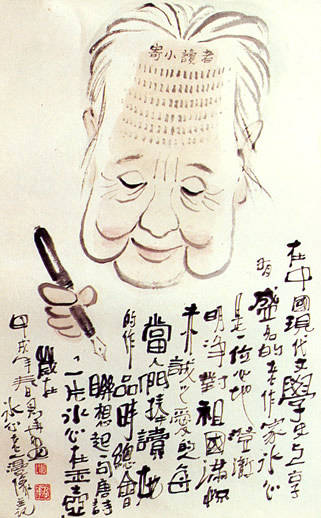 寄小讀者
在中國現代文學史上享
有盛名的老作家冰心
是一位心地澄澈
明净對祖國滿懷
赤誠之愛的每
當人們捧讀她
的作品時總會
聯想起一句唐詩
一片冰心在玉壺
歲在
甲戌年春日
冰心老人漫像